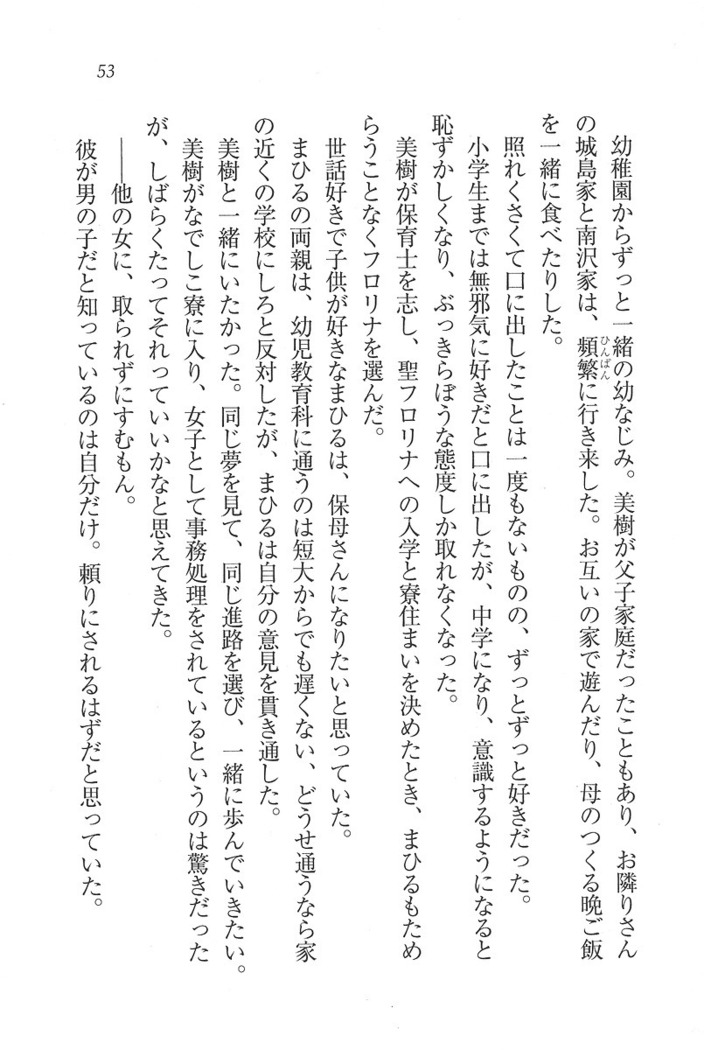 53
幼稚園からずっと一緒の幼なじみ。美樹が父子家庭だったこともあり、お隣りさん
の城島家と南沢家は、頻繁に行き来した。お互いの家で遊んだり、母のつくる晩ご飯
ひんぱん
を一緒に食べたりした。
照れくさくて口に出したことは一度もないものの、ずっとずっと好きだった。
小学生までは無邪気に好きだと口に出したが、中学になり、意識するようになると
恥ずかしくなり、ぶっきらぼうな態度しか取れなくなった。
美樹が保育士を志し、聖フロリナへの入学と寮住まいを決めたとき、まひるもため
らうことなくフロリナを選んだ。
世話好きで子供が好きなまひるは、保母さんになりたいと思っていた。
まひるの両親は、幼児教育科に通うのは短大からでも遅くない、どうせ通うなら家
の近くの学校にしろと反対したが、まひるは自分の意見を貫き通した。
美樹と一緒にいたかった。同じ夢を見て、同じ進路を選び、一緒に歩んでいきたい。
美樹がなでしこ寮に入り、女子として事務処理をされているというのは驚きだった
が、しばらくたってそれっていいかなと思えてきた。
――他の女に、取られずにすむもん。
彼が男の子だと知っているのは自分だけ。頼りにされるはずだと思っていた。